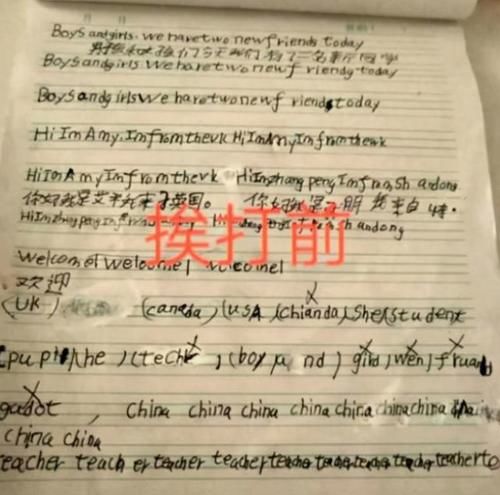 Boysandgirls. we have two new friends today
男孩和女孩们今天我们有了二名新同学
Boysandgirls. We have two new f riendg today
Boysandg irls we have two new f riends today
Hi Im Amy. Im from the vk Hi Im Amy Im from the wk
Hi Im A my Im f rom the vk Him zhang peng Im f rom Sh andong
你好我是艾米我来自英国。 你好我是 朋 我来自
Him zhang peng Im from Shandong
挨打前
Welcome! Welcome! Welcome!
欢迎
(UK) (canada) (USA (chianda) she(student
(pupil)(he ) (teche , (boy nd ) gird , wen) fruand
gadot , china china china china china china china
china china
teacher teach er teacher teacher teacher teacher teacher teacher teacher te